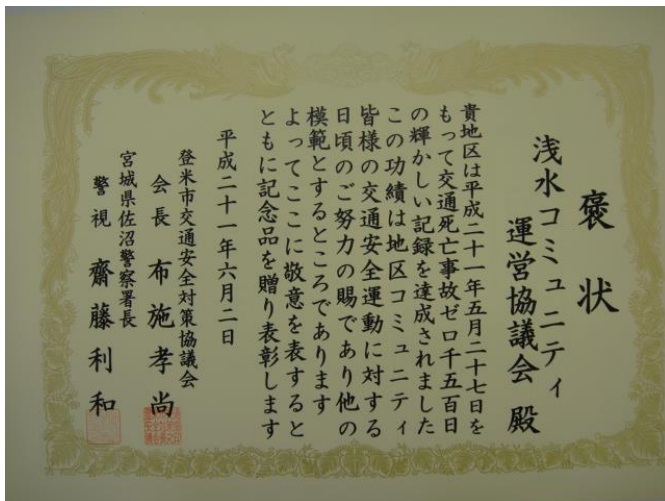 褒状
浅水コミュニティ
運営協議会 殿
貴地区は平成二十一年五月二十七日を
もって交通死亡事故ゼロ千五百日
の輝かしい記録を達成されました
この功績は地区コミュニティ
皆様の交通安全運動に対する
日頃のご努力の賜であり他の
模範とするところであります
よってここに敬意を表すると
ともに記念品を贈り表彰します
平成二十一年六月二日
登米市交通安全対策協議会
会長 布施孝尚
宮城県佐沼警察署長
警視 齋藤利和